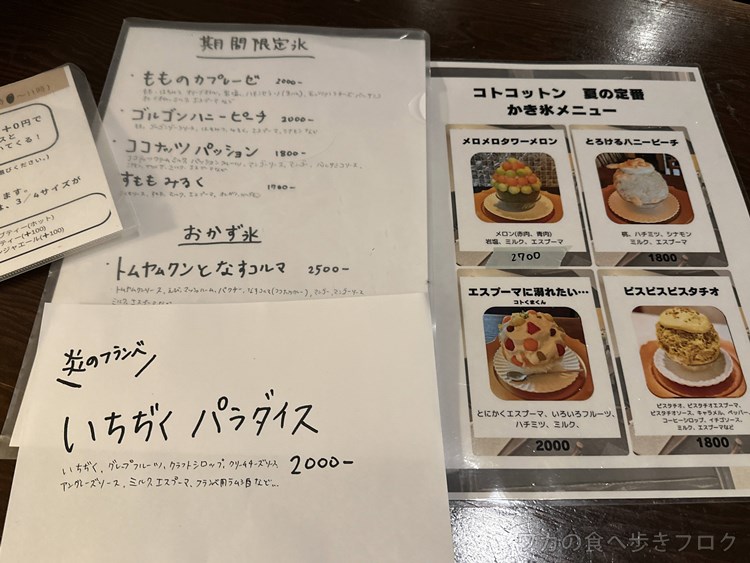 ～11時)
+0円で
スと
いてくる！
選びください。)
ます。
は、3/4サイズが
プティー(ホット)
ティー(+100)
ンジャエール(+100)
期間限定氷
・もものカプレーゼ 2000-
・ゴルゴンハニーピーチ 2000-
・ココナッツパッション 1800-
すももみるく 1700-
おかず氷
・トムヤムクンとなすコルマ 2500-
炎のフランベ
いちぢく パラダイス
いちぢく、グレープフルーツ、クラフトシロップ、クリームチーズソース 2000-
アングレーズソース、ミルクエスプーマ、フランベ用ラム酒など...
コトコットン 夏の定番
かき氷メニュー
メロメロタワーメロン
メロン(赤肉、青肉)
岩塩、ミルク、エスプーマ
2700
とろけるハニーピーチ
桃、ハチミツ、シナモン
ミルク、エスプーマ
1800
エスプーマに溺れたい…
コトくまくん
とにかくエスプーマ、いろいろフルーツ、
ハチミツ、ミルク、
2000
ピスピスピスタチオ
ピスタチオ、ピスタチオエスプーマ、
ピスタチオソース、キャラメル、ペッパー、
コーヒーシロップ、イチゴソース、
ミルク、エスプーマなど
1800
の食べ歩きブログ